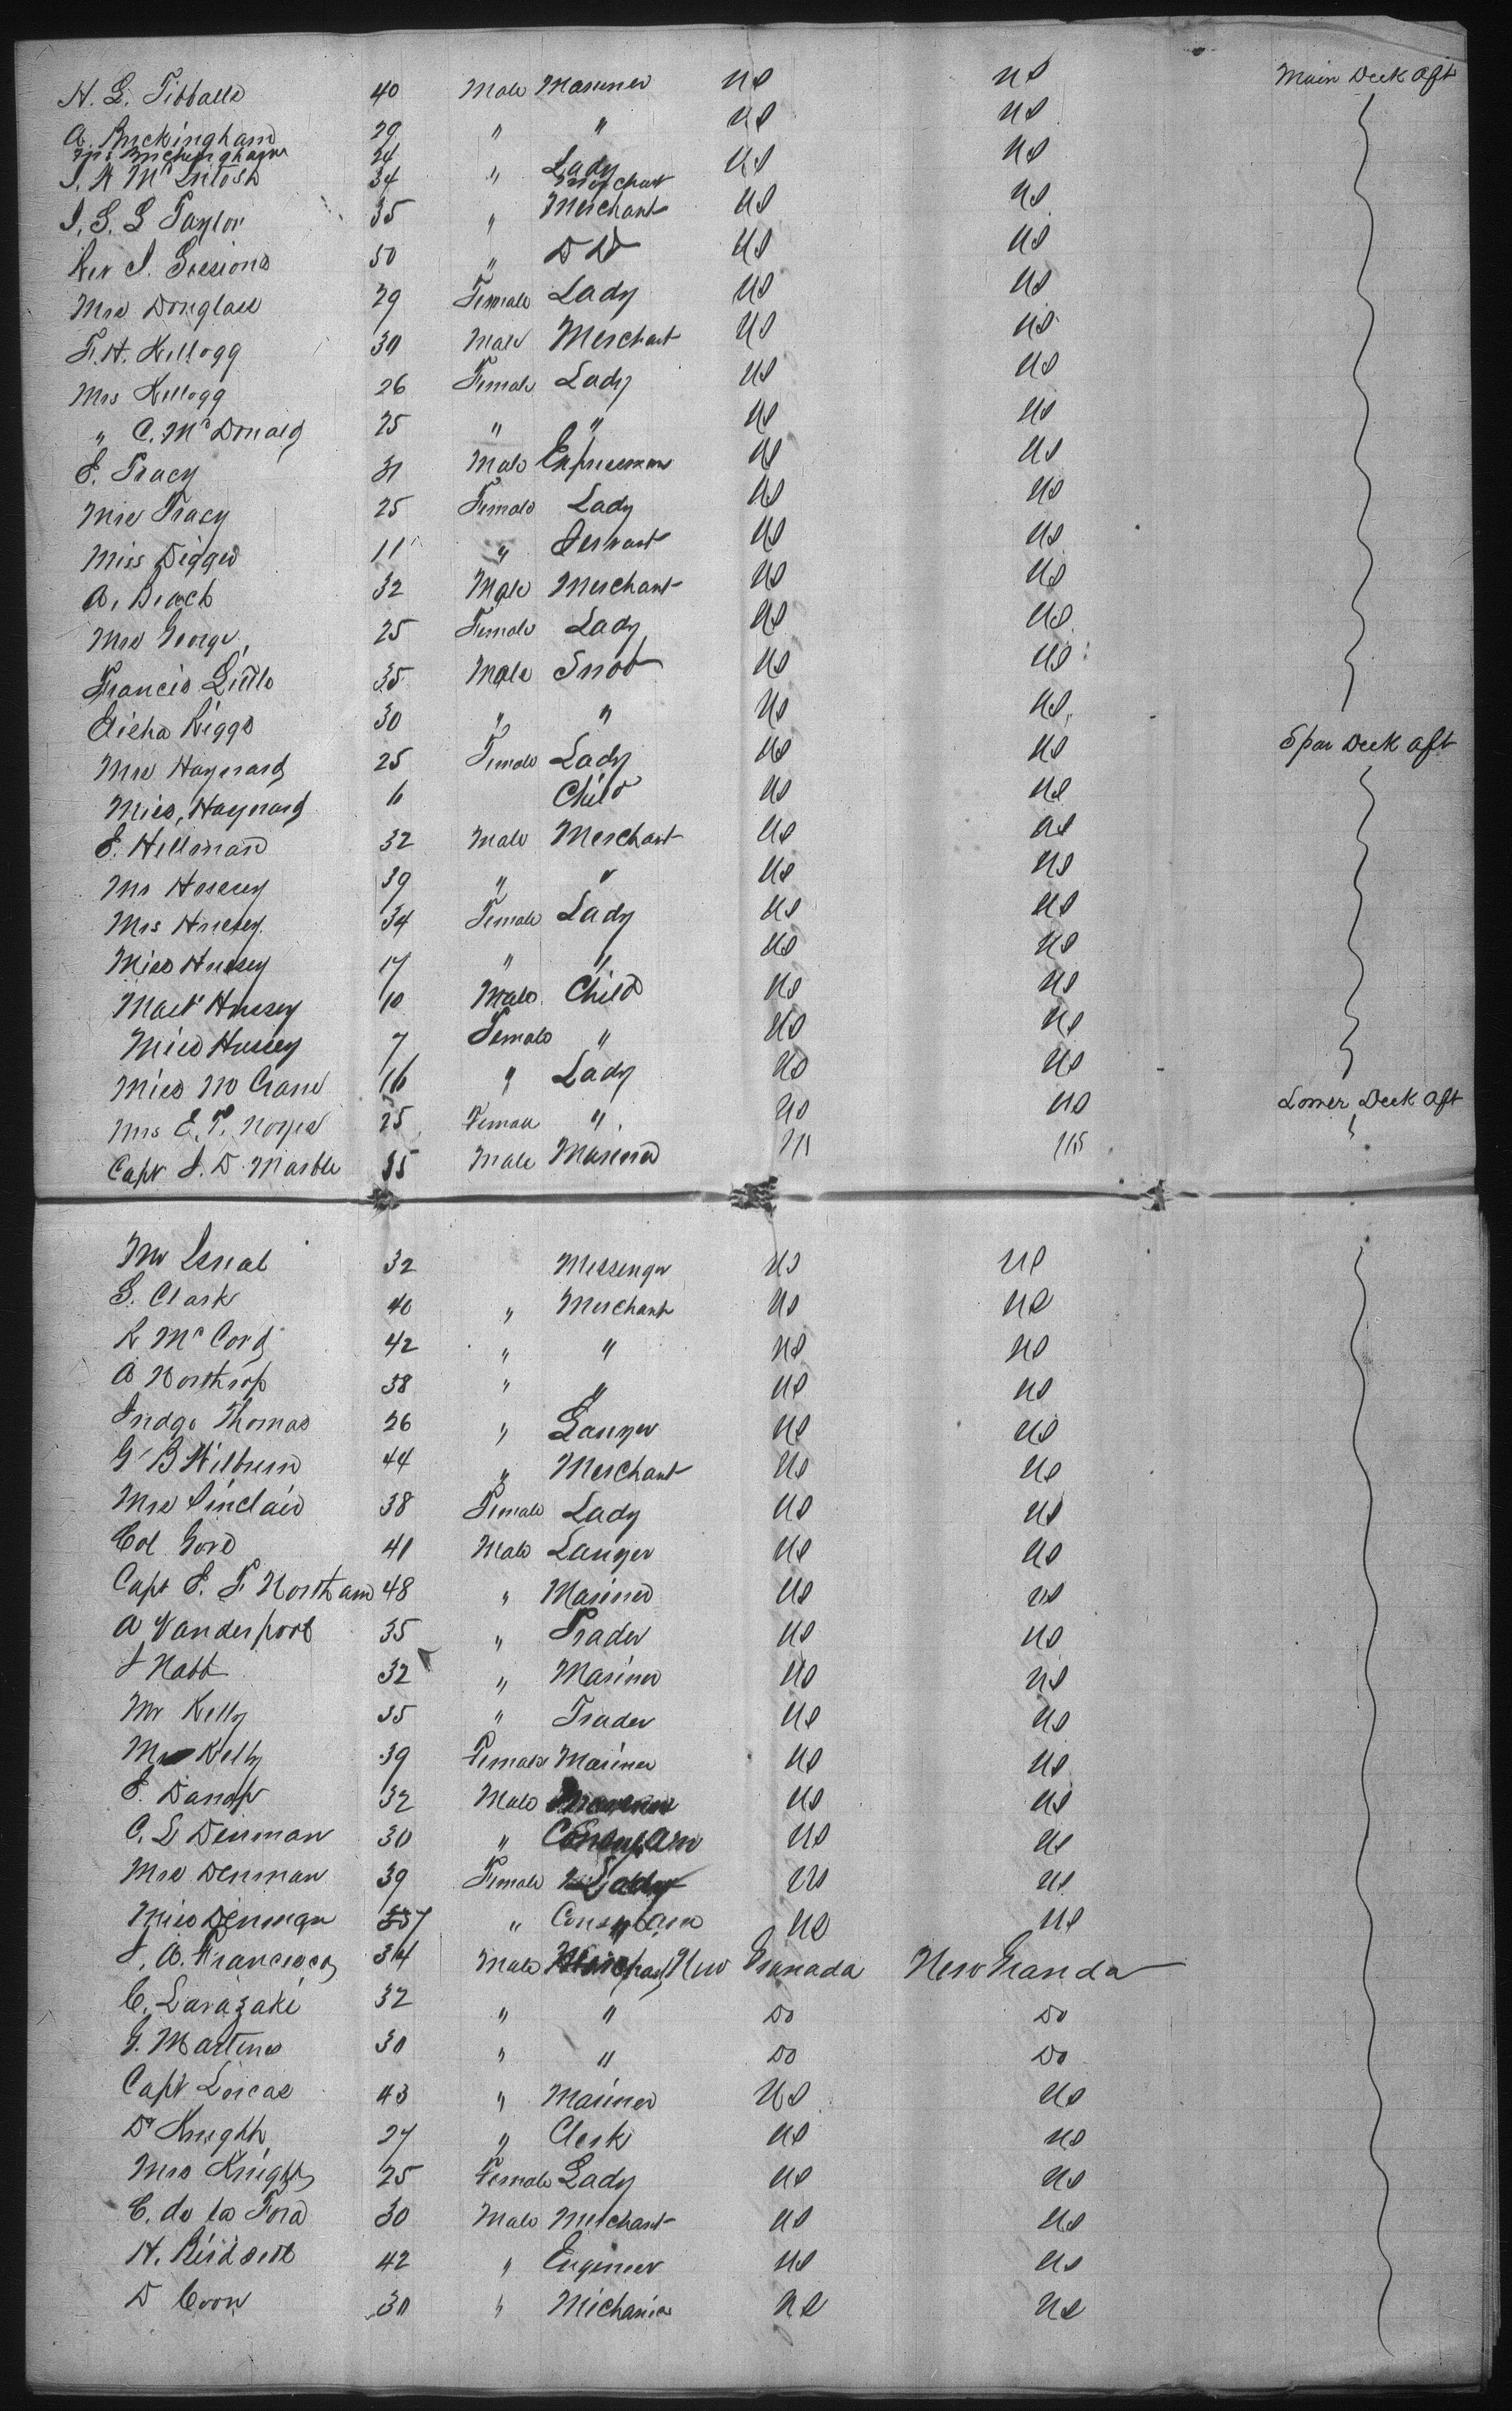 H. L. Tibballs 40 Male Mariner US US Main Deck Aft
A. Buckingham 29 " " US US
Mrs Buckingham 24 " Lady US US
J. A McIntosh 34 Merchant
J. S. L Taylor 35 " Merchant US US
Rev J. Sessions 50 " DD US US
Mrs Douglass 29 Female Lady US US
F. H. Kellogg 30 Male Merchant US US
Mrs Kellogg 26 Female Lady US US
" C. McDonald 25 " " US US
J. Tracy 31 Male Expressman US US
Mrs Tracy 25 Female Lady US US
Miss Digges 11 " Servant US US
A. Beach 32 Male Merchant US US
Mrs George 25 Female Lady US US
Francis Little 35 Male Snob US US
Elisha Riggs 30 " " US US
Mrs Haynard 25 Female Lady US US Spar Deck aft
Miss, Haynard 6 Child US US
J. Hellman 32 Male Merchant US US
Mr Hussey 39 " " US US
Mrs Hussey 34 Female Lady US US
Miss Hussey 17 " " US US
Mast Hussey 10 Male Child US US
Miss Hussey 7 Female " US US
Miss M Crane 16 " Lady US US
Mrs E. P. Noyes 25 Female " US US Lower Deck Aft
Capt J. D. Marble 35 Male Mariner US US
Mr 32 Messenger US US
S. Clark 40 " Merchant US US
R McCord 42 " " US US
A Northrop 38 " " US US
Judge Thomas 26 " Lawyer US US
G B Wilburn 44 " Merchant US US
Mrs Sinclair 38 Female Lady US US
Col Gore 41 Male Lawyer US US
Capt J. F. Northam 48 " Mariner US US
A Vanderpool 35 " Trader US US
J Nabb 32 " Mariner US US
Mr Kelly 35 " Trader US US
Kelly 39 Female Mariner US US
J. 32 Male US US
C. L Denman 30 " US US
Mrs Denman 39 Female Lady US US
Miss Denman " US US
J. A. Francisco 34 Male New Granada New Granda
C. Larazaki 32 " " Do Do
G. Martines 30 " " Do Do
Capt Lucas 43 " Mariner US US
Dr Knight 27 " Clerk US US
Mrs Knight 25 Female Lady US US
C. de la Fora 30 Male Merchant US US
H. Birdsell 42 " Engineer US US
D Coon 30 " Michanic US US